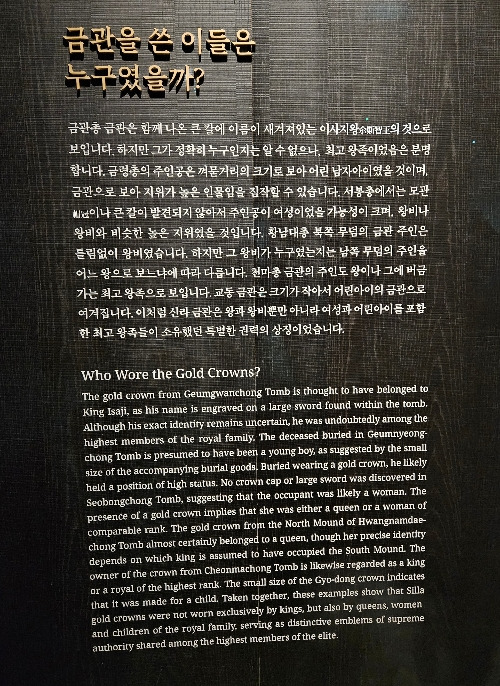 금관을 쓴 이들은
누구였을까?
금관총 금관은 함께 나온 큰 칼에 이름이 새겨져있는 이사지왕尒斯智王의 것으로
보입니다. 하지만 그가 정확히 누구인지는 알 수 없으나, 최고 왕족이었음은 분명
합니다. 금령총의 주인공은 껴묻거리의 크기로 보아 어린 남자아이였을 것이며,
금관으로 보아 지위가 높은 인물임을 짐작할 수 있습니다. 서봉총에서는 모관
이나 큰 칼이 발견되지 않아서 주인공이 여성이었을 가능성이 크며, 왕비나
왕비와 비슷한 높은 지위였을 것입니다. 황남대총 북쪽 무덤의 금관 주인은
틀림없이 왕비였습니다. 하지만 그 왕비가 누구였는지는 남쪽 무덤의 주인을
어느 왕으로 보느냐에 따라 다릅니다. 천마총 금관의 주인도 왕이나 그에 버금
가는 최고 왕족으로 보입니다. 교동 금관은 크기가 작아서 어린아이의 금관으로
여겨집니다. 이처럼 신라 금관은 왕과 왕비뿐만 아니라 여성과 어린아이를 포함
한 최고 왕족들이 소유했던 특별한 권력의 상징이었습니다.
Who Wore the Gold Crowns?
The gold crown from Geumgwanchong Tomb is thought to have belonged to
King Isaji, as his name is engraved on a large sword found within the tomb.
Although his exact identity remains uncertain, he was undoubtedly among the
highest members of the royal family. The deceased buried in Geumnyeong-
chong Tomb is presumed to have been a young boy, as suggested by the small
size of the accompanying burial goods. Buried wearing a gold crown, he likely
held a position of high status. No crown cap or large sword was discovered in
Seobongchong Tomb, suggesting that the occupant was likely a woman. The
presence of a gold crown implies that she was either a queen or a woman of
comparable rank. The gold crown from the North Mound of Hwangnamdae-
chong Tomb almost certainly belonged to a queen, though her precise identity
depends on which king is assumed to have occupied the South Mound. The
owner of the crown from Cheonmachong Tomb is likewise regarded as a king
or a royal of the highest rank. The small size of the Gyo-dong crown indicates
that it was made for a child. Taken together, these examples show that Silla
gold crowns were not worn exclusively by kings, but also by queens, women
and children of the royal family, serving as distinctive emblems of supreme
authority shared among the highest members of the elite.